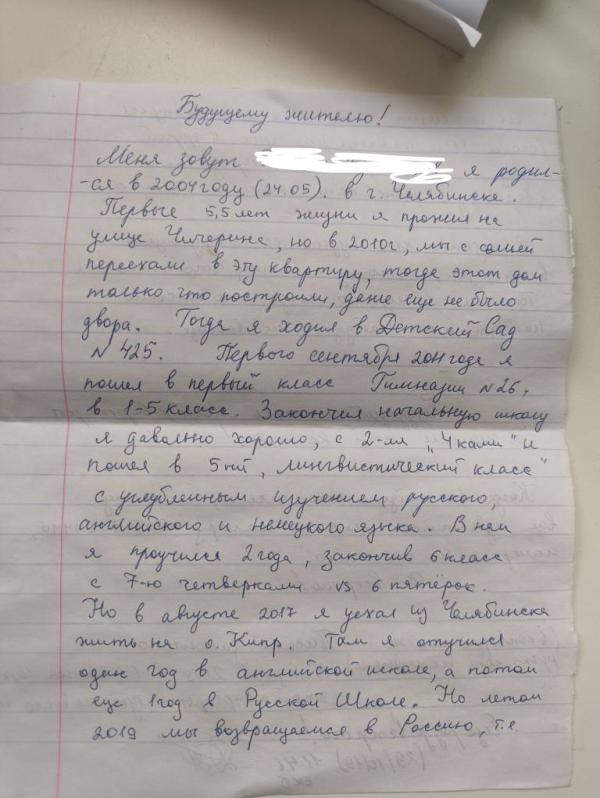 Будущему жителю!
Меня зовут я родил-
-ся в 2004 году (24.05). в г. Челябинске.
Первые 5,5 лет жизни я прожил на
улице Чичерина, но в 2010г, мы с семьей
переехали в эту квартиру, тогда этот дом
только что построили, даже еще не было
двора. Тогда я ходил в Детский Сад
№ 425. Первого сентября 2011 года я
пошел в первый класс Гимназии №26,
в 1-5 класс. Закончил начальную школу
я давольно хорошо, с 2-мя „4ками" и
пошел в 5ый „лингвистический класс"
с углубленным изучением русского,
английского и немецкого языка. В нем
я проучился 2 года, закончив 6 класс
с 7-ю четверками vs 6 пятёрок.
Но в августе 2017 я уехал из Челябинска
жить на о. Кипр. Там я отучился
один год в английской школе, а потом
еще 1 год в Русской Школе. Но летом
2019 мы возвращаемся в Россию, т.е.